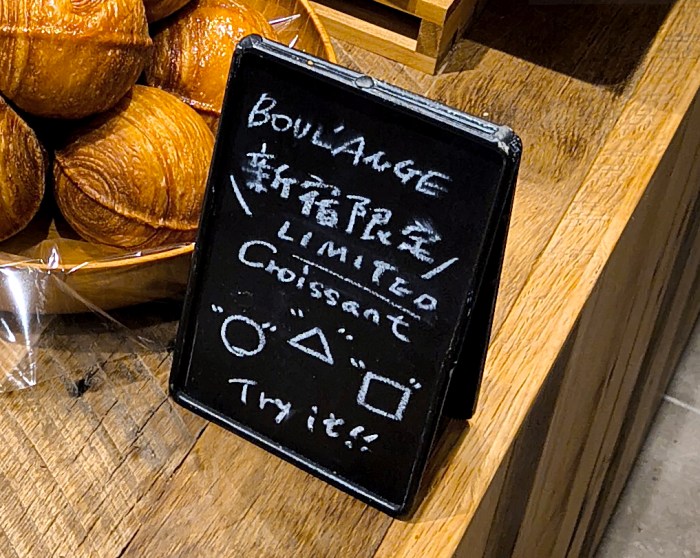 BOUL'ANGE
新宿限定
LIMITED
Croissant
"○" "△" "□"
Try it!!